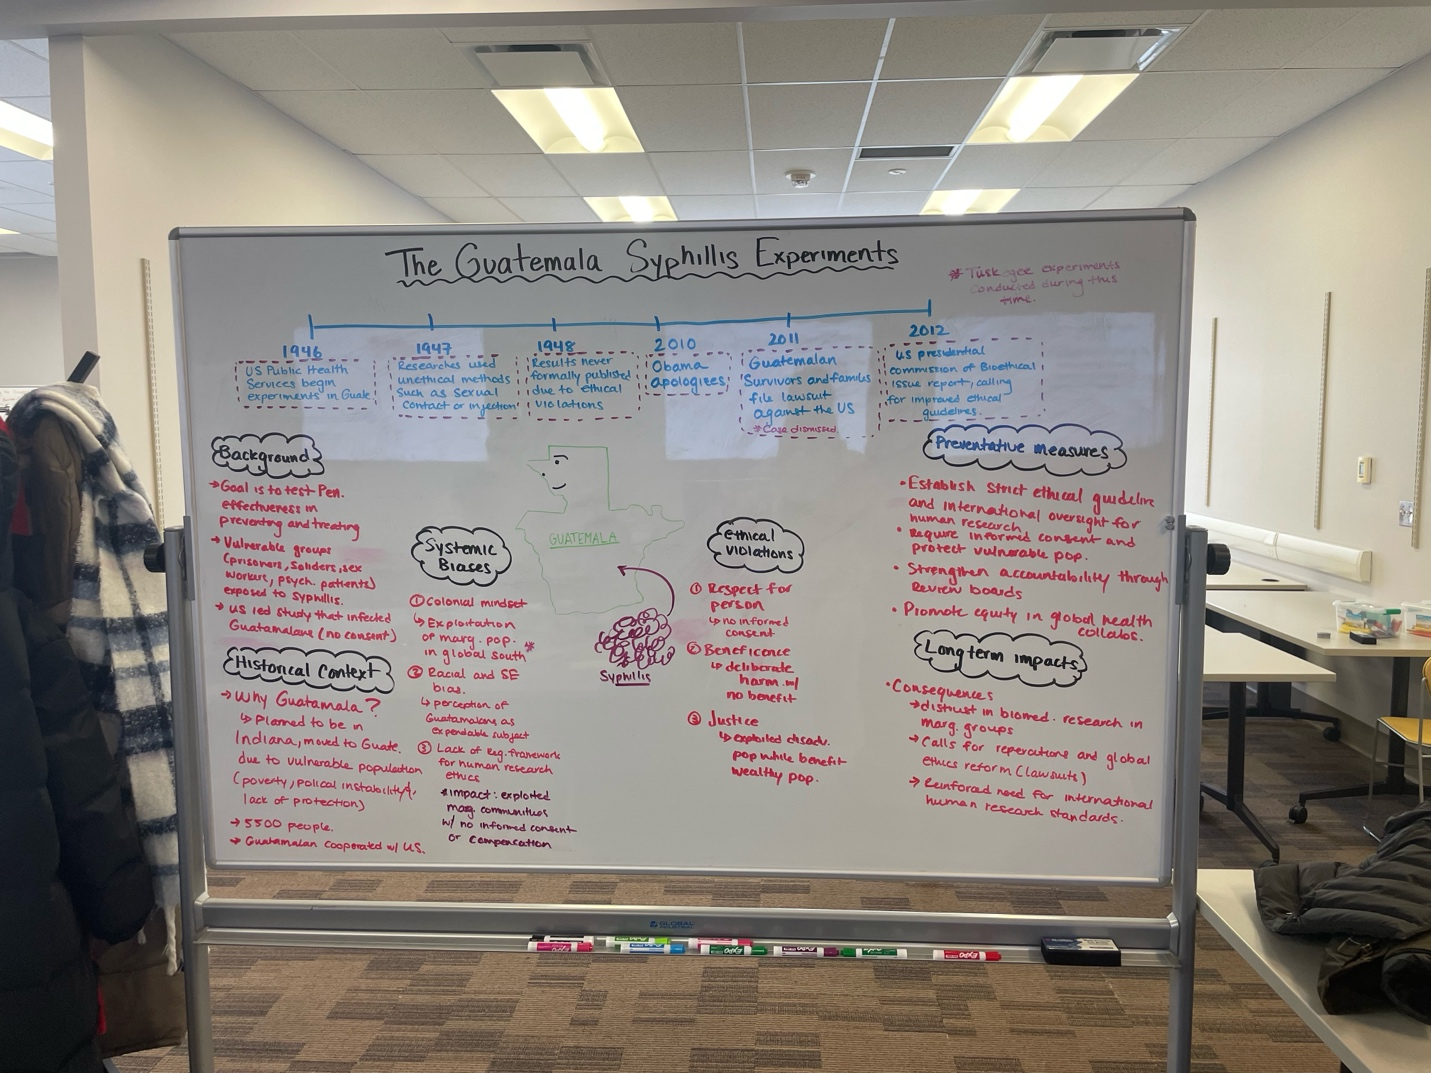 The Guatemala Syphillis Experiments
* Tuskegee experiments
conducted during this
time.
1946
US Public Health
Services begin
experiments in Guate
1947
Researches used
unethical methods
such as sexual
contact or injection
1948
Results never
formally published
due to ethical
violations
2010
Obama
apologizes
2011
Guatemalan
survivors and families
file lawsuit
against the US
*Case dismissed
2012
US presidential
commission of Bioethical
issue report, calling
for improved ethical
guidelines.
Background
→ Goal is to test Pen.
effectiveness in
preventing and treating
→ Vulnerable groups
(prisoners, soliders, sex
workers, psych. patients)
exposed to syphilis.
→ US led study that infected
Guatemalans (no consent)
Historical Context
→ Why Guatamala?
↳ Planned to be in
Indiana, moved to Guate.
due to vulnerable population
(poverty, polical instability,
lack of protection)
→ 5500 people.
→ Guatamalan cooperated w/ U.S.
Systemic
Biases
① Colonial mindset
↳ Exploitation
of marg. pop.
in global south *
② Racial and SE
bias.
↳ perception of
Guatamalans as
expendable subject
③ Lack of Reg. framework
for human research
ethics
* impact: exploited
marg communities
w/ no informed consent
or compensation
GUATEMALA
Syphillis
ethical
violations
① Respect for
person
↳ no informed
consent
② Beneficence
↳ deliberate
harm w/
no benefit
③ Justice
↳ exploited disadv.
pop while benefit
wealthy pop.
Preventative measures
• Establish strict ethical guideline
and international oversight for
human research
• Require informed consent and
protect vulnerable pop.
• Strengthen accountability through
Review boards
• Promote equity in global health
collabs.
Long term impacts
• Consequences
→ distrust in biomed. research in
marg. groups
→ Calls for reperations and global
ethics reform (lawsuits)
→ Reinforced need for international
human research standards.
GLOBAL
EXPO